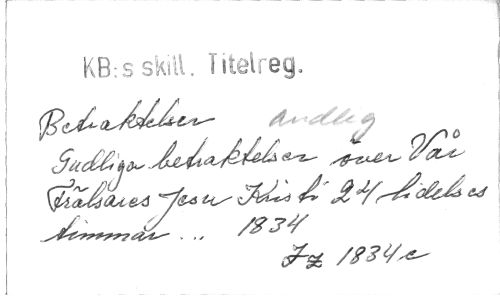 KB:s skill. Titelreg.
Betraktelser andlig
Gudliga betraktelser över Vår
Frälsares Jesu Kristi 24 lidelses
timmar ... 1834
Jz 1834 c